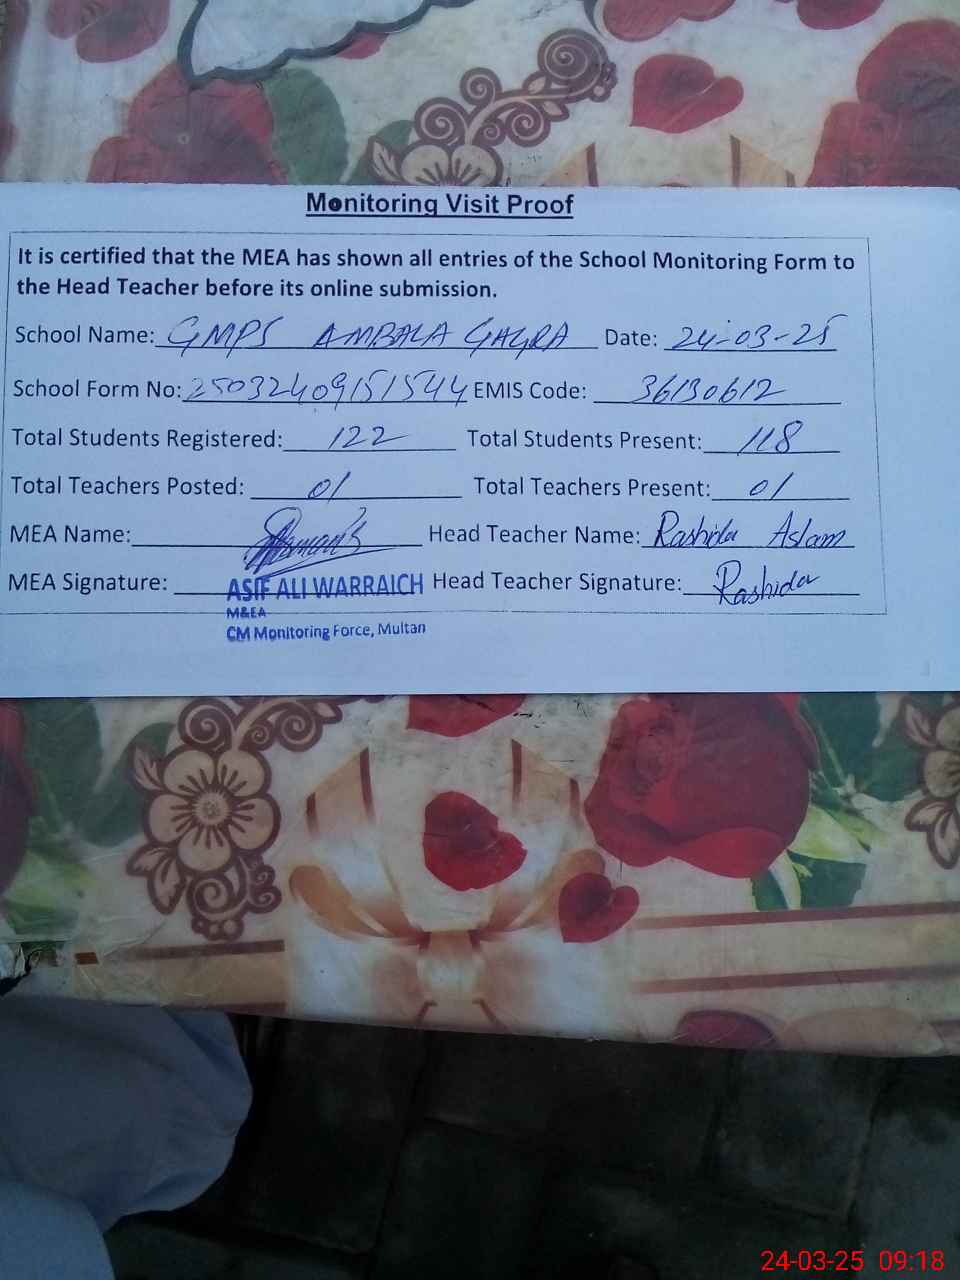 Monitoring Visit Proof
It is certified that the MEA has shown all entries of the School Monitoring Form to
the Head Teacher before its online submission.
School Name: GMPS AMBALA GAGRA Date: 24-03-25
School Form No: 25032409151544 EMIS Code: 36130612
Total Students Registered: 122 Total Students Present: 118
Total Teachers Posted: 01 Total Teachers Present: 01
MEA Name: Head Teacher Name: Rashida Aslam
MEA Signature: Head Teacher Signature: Rashida
ASIF ALI WARRAICH
M&EA
CM Monitoring Force, Multan
24-03-25 09:18